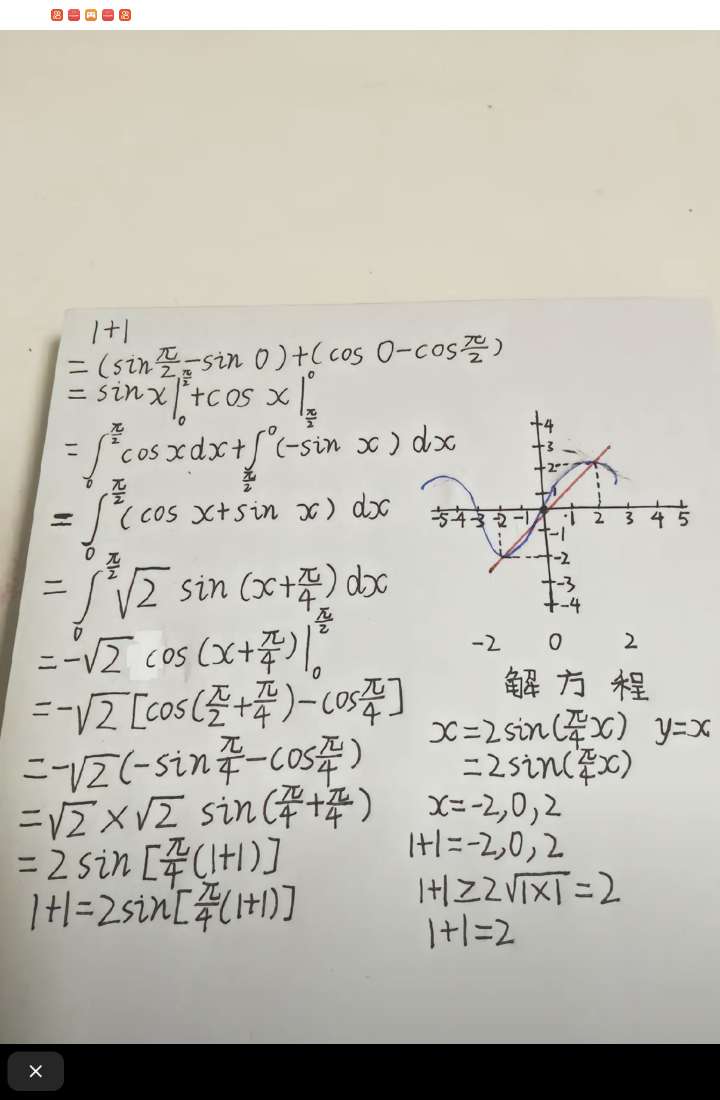 1+1
=(sin π/2 - sin 0)+(cos 0 - cos π/2)
= sin x|₀^(π/2) + cos x|_(π/2)^0
= ∫₀^(π/2) cos x dx + ∫_(π/2)^0 (-sin x) dx
= ∫₀^(π/2) (cos x + sin x) dx
= ∫₀^(π/2) √2 sin (x+π/4) dx
= -√2 cos (x+π/4)|₀^(π/2)
= -√2 [cos(π/2+π/4) - cos π/4]
= -√2 (-sin π/4 - cos π/4)
= √2 × √2 sin(π/4+π/4)
= 2 sin [π/4(1+1)]
1+1=2sin[π/4(1+1)]
4
3
2
1
-5 -4 -3 -2 -1 1 2 3 4 5
-1
-2
-3
-4
-2 0 2
解方程
x=2sin(π/4 x) y=x
=2sin(π/4 x)
x=-2,0,2
1+1=-2,0,2
1+1≥2√(1×1)=2
1+1=2